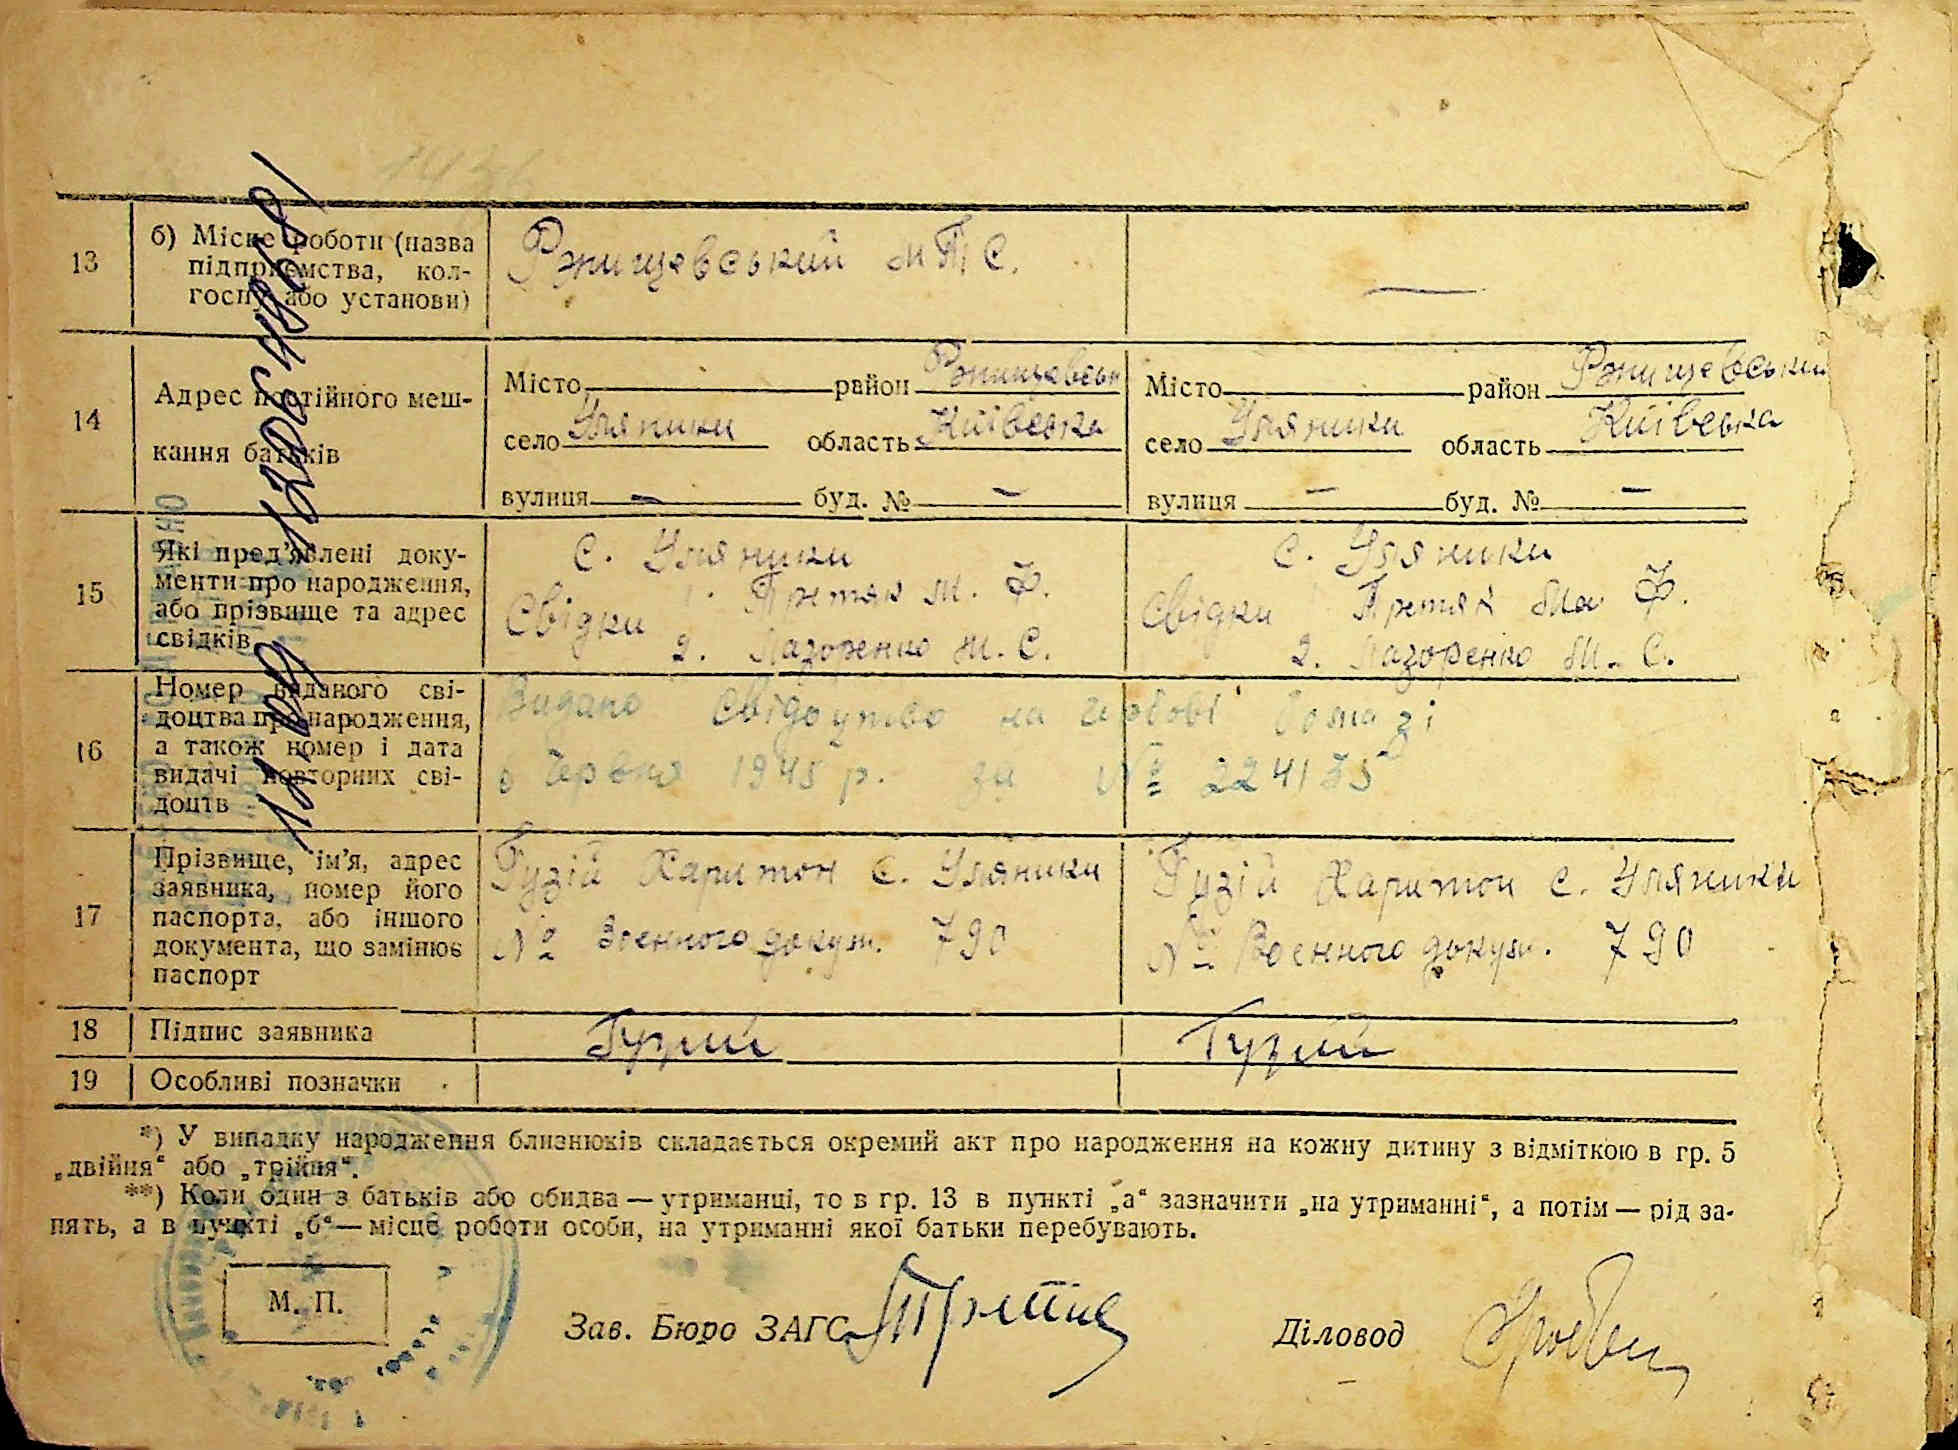 13
б) Місце роботи (назва
підприємства, кол-
госпу або установи)
Ржищевський МТС.
14
Адрес постійного меш-
кання батьків
Місто район Ржищевськ
село Уляники область Київська
вулиця — буд. № —
Місто район Ржищевський
село Уляники область Київська
вулиця — буд. № —
15
Які пред'явлені доку-
менти про народження,
або прізвище та адрес
свідків
с. Уляники
Свідки 1. Третяк М. Ф.
2. Лазоренко М. С.
с. Уляники
Свідки Третяк Ма Ф.
2. Лазоренко М. С.
16
Номер виданого сві-
доцтва про народження,
а також номер і дата
видачі повторних сві-
доцтв
Видано свідоцтво на гербові бомазі
6 червня 1945 р. за № 224135
17
Прізвище, ім'я, адрес
заявника, номер його
паспорта, або іншого
документа, що замінює
паспорт
Гузій Харитон с. Уляники
№ Воєнного докум. 790
Гузій Харитон с. Уляники
№ Воєнного докум. 790
18
Підпис заявника
Гузий
Гузий
19
Особливі позначки
*) У випадку народження близнюків складається окремий акт про народження на кожну дитину з відміткою в гр. 5
„двійня“ або „трійня“.
**) Коли один з батьків або обидва — утриманці, то в гр. 13 в пункті „а“ зазначити „на утриманні“, а потім — рід за-
нять, а в пункті „б“ — місце роботи особи, на утриманні якої батьки перебувають.
М. П.
Зав. Бюро ЗАГС
Діловод